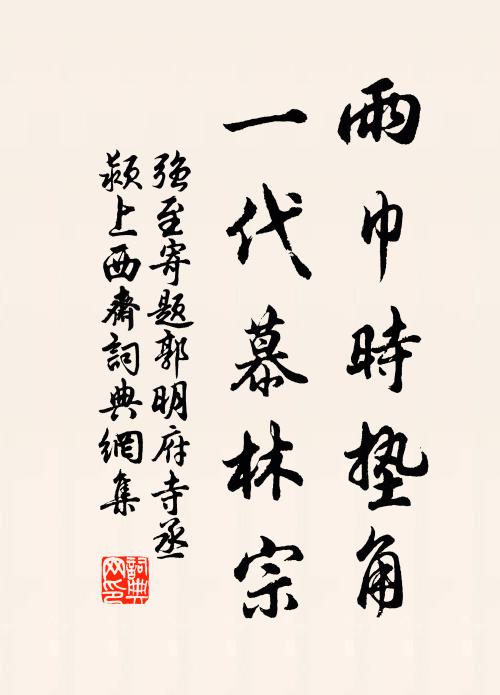 雨巾時墊角
一代慕林宗
強至寄題郭明府寺丞
潁上西齋詞典網集
詞典
网印